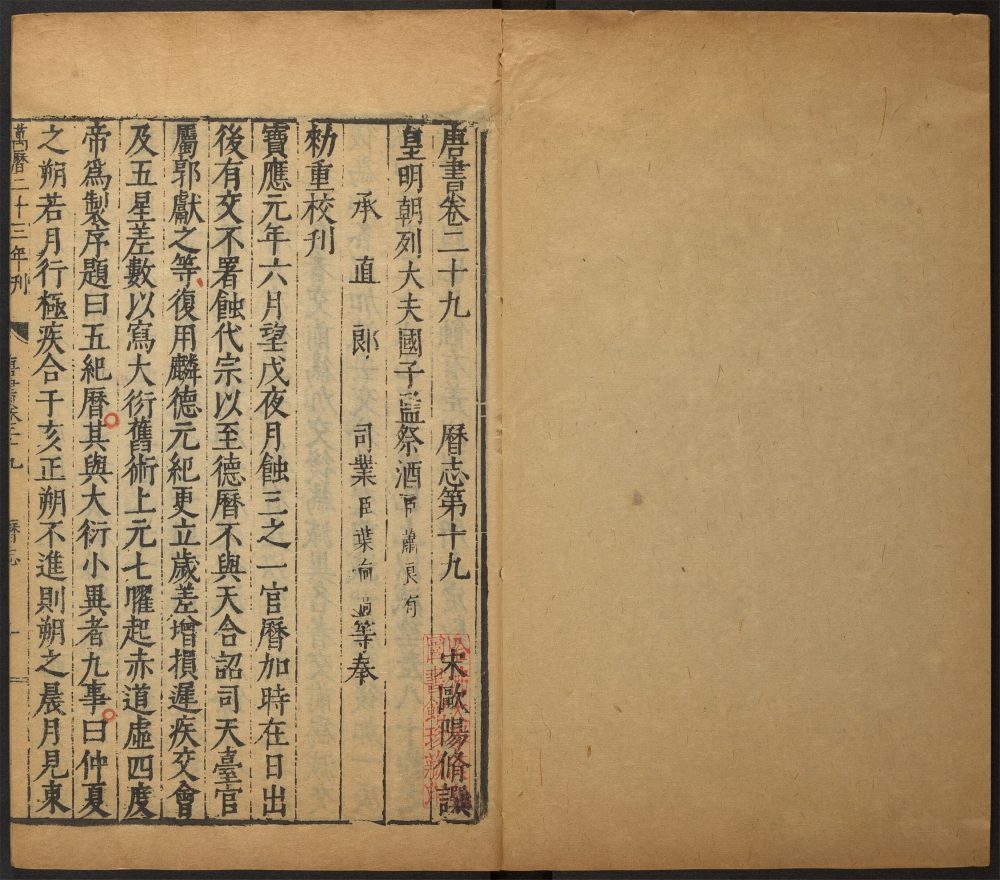 唐書卷二十九 曆志第十九 宋歐陽脩譔
皇明朝列大夫國子監祭酒臣蕭良有
承直郎司業臣葉向高等奉
勑重校刋
寶應元年六月望戊夜月蝕三之一官曆加時在日出
後有交不署蝕代宗以至德曆不與天合詔司天臺官
屬郭獻之等復用麟德元紀更立歲差增損遲疾交會
及五星差數以寫大衍舊術上元七曜起赤道虛四度
帝爲製序題曰五紀曆其與大衍小異者九事曰仲夏
之朔若月行極疾合于亥正朔不進則朔之晨月見東
萬曆二十三年刋 唐書卷二十九 曆志 一